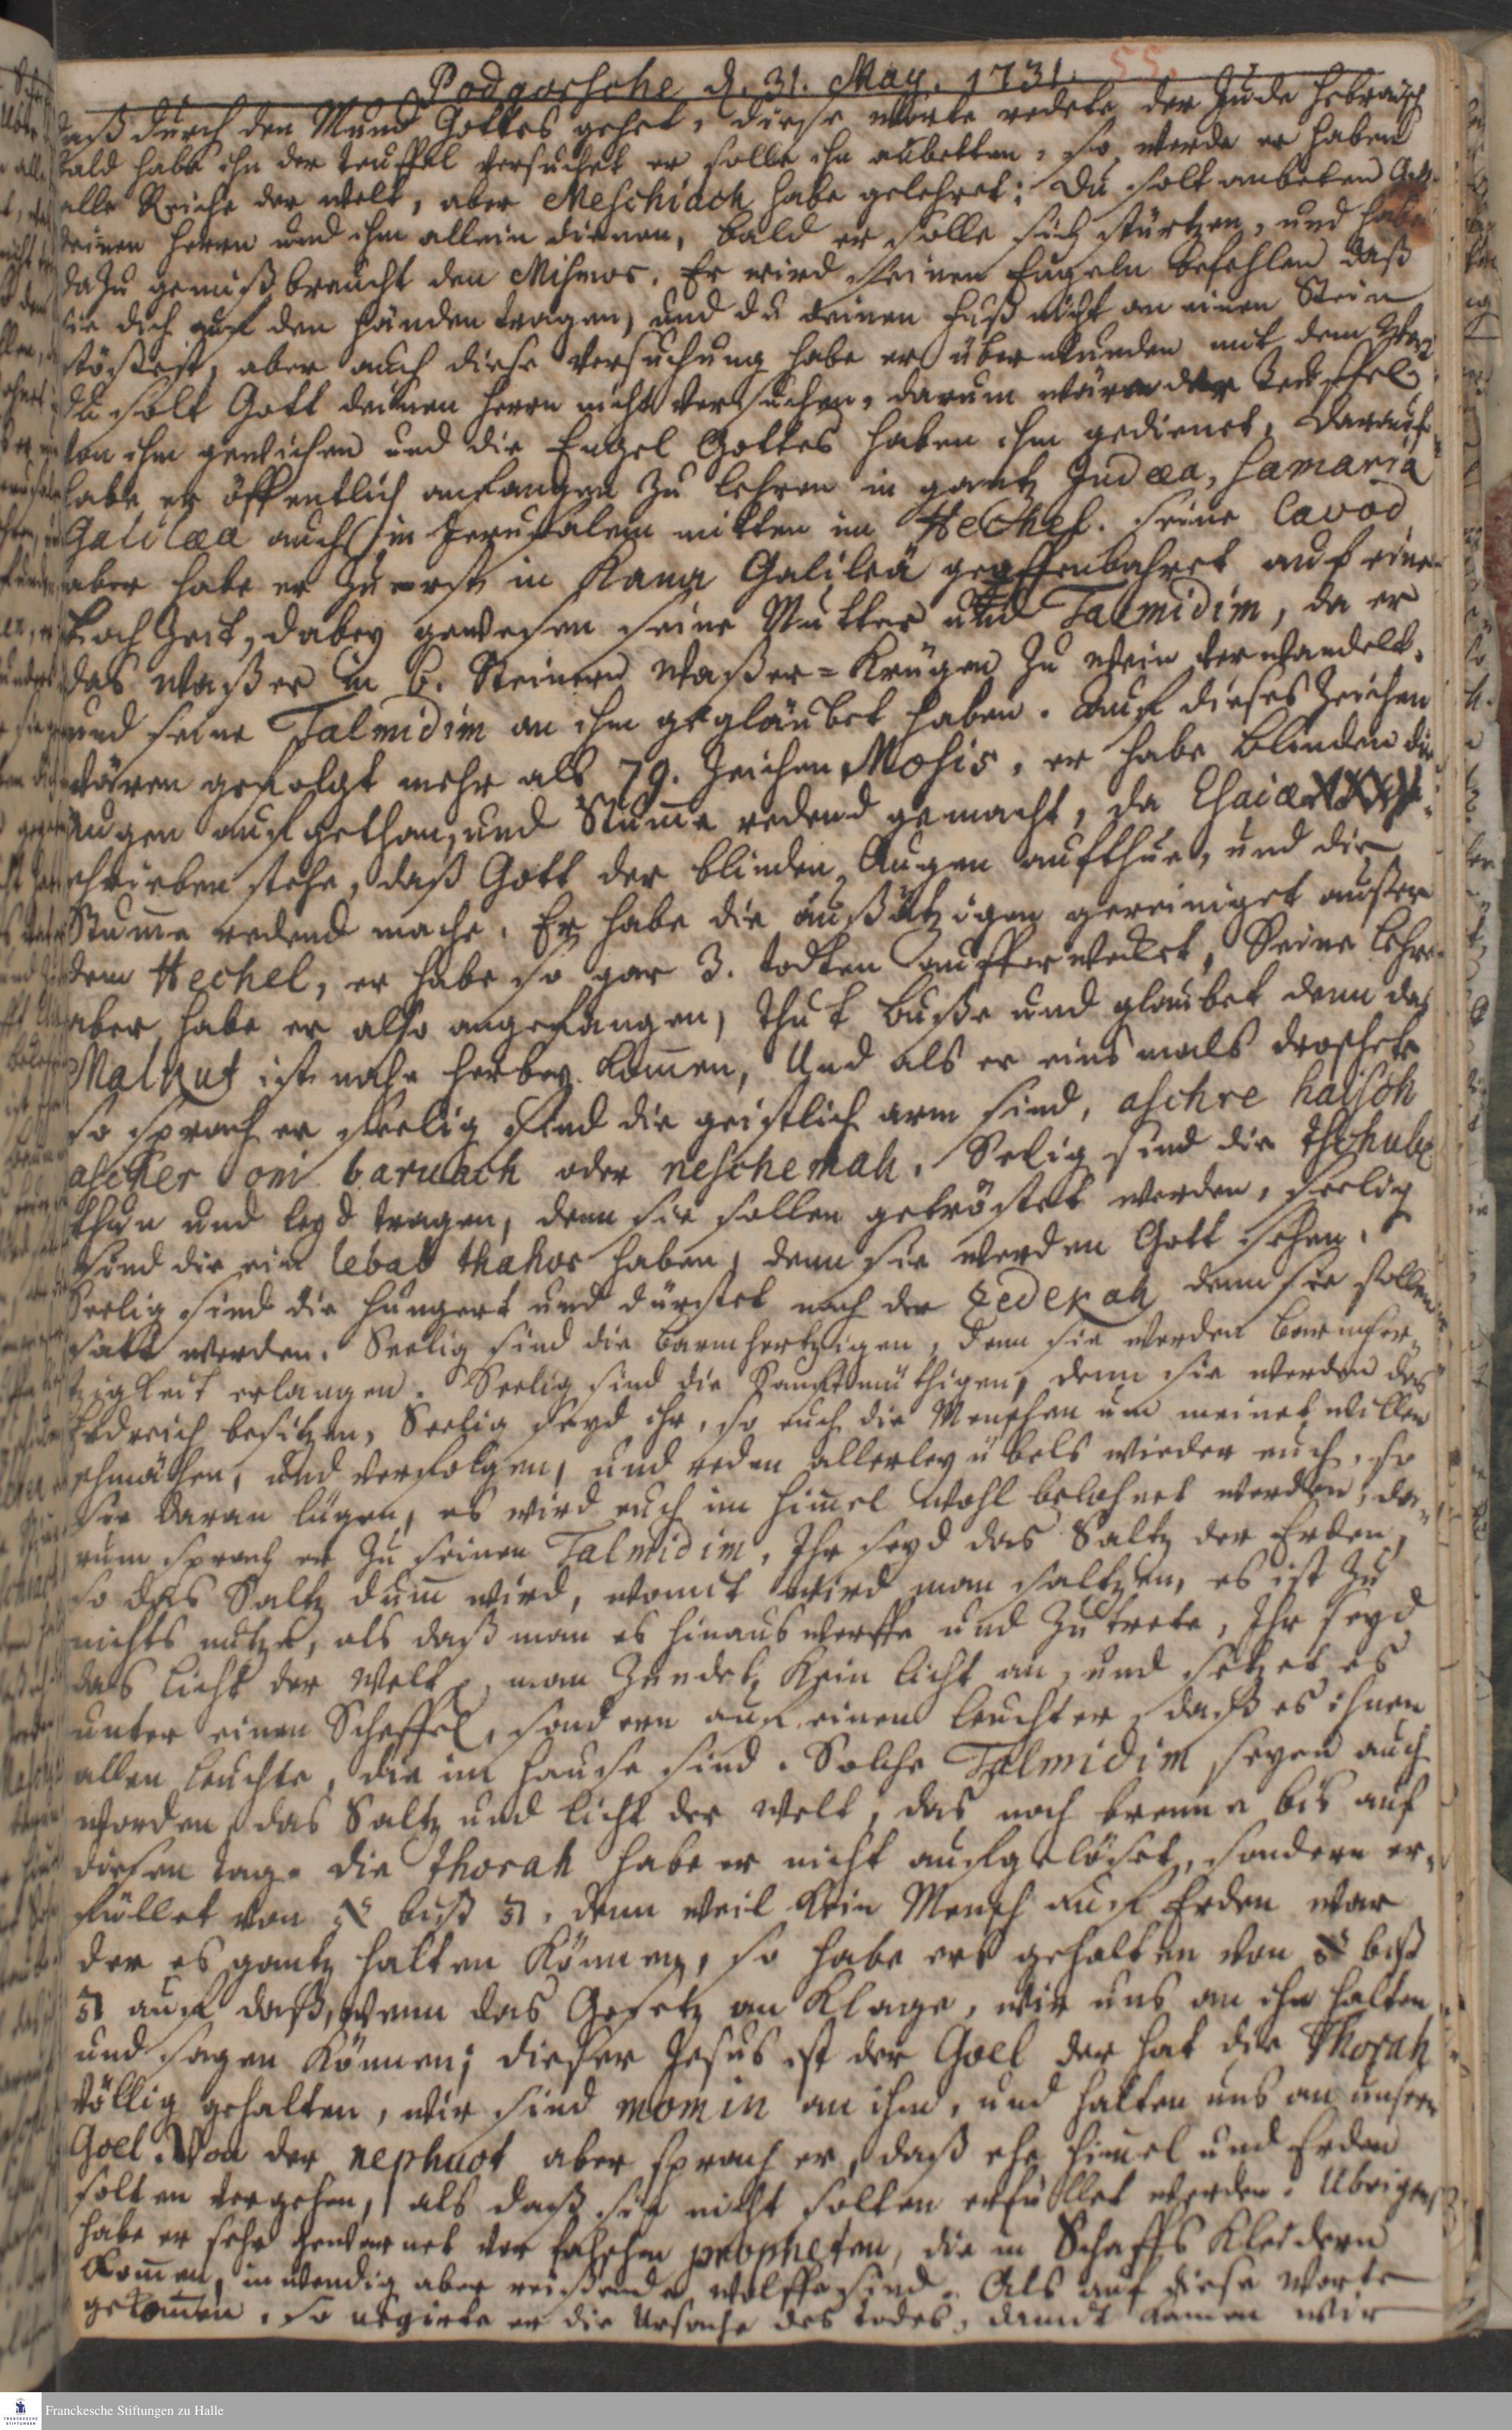 Podgorsche d. 31. May. 1731. 55.
daß durch den Mund Gottes gehet, diese worte redete der Jude hebraisch
bald habe ihn der teuffel versuchet er solle ihn anbetten, so werde er haben
alle Reiche der welt, aber Meschiach habe gelehret: du solt anbeten Gott
deinen Herrn und ihm allein dienen, bald er solle sich stürtzen, und habe
dazu gemißbraucht den Mismor. Er wird seinen Engeln befehlen daß
sie dich auf den Händen tragen, und du deinen Fuß nicht an einen Stein
stößest, aber auch diese versuchung habe er überwunden mit dem
du solt Gott deinen Herrn nicht versuchen, darum wäre der Teuffel
von ihm gewichen und die Engel Gottes haben ihm gedienet, darauf
habe er öffentlich anfangen zu lehren in gantz Judæa, Samaria
Galilæa auch in Jerusalem mitten im Hechel. seine Cavod
aber habe er zu erst in Kana Galileä geoffenbahret auf eine
Hochzeit, dabey gewesen seine Mutter und Talmidim, da er
das waßer in 6. Steinern waßer=Krügen zu wein verwandelt.
und seine Talmidim an ihm gegläubet haben. Auf dieses Zeichen
wären gefolgt mehr als 79. Zeichen Mosis, er habe blinden die
Augen aufgethan, und Stum̄e redend gemacht, da Esaiæ XXXV.
schrieben stehe, daß Gott der blinden Augen aufthue, und die
Stum̄e redend mache. Er habe die außätzigen gereiniget außer
dem Hechel, er habe so gar 3. todten aufferwecket, Seine Lehre
aber habe er also angefangen, thut buße und glaubet denn das
Malkut ist nahe herbey kom̄en, Und als er eins mals droschete
so sprach er seelig sind die geistlich arm sind, aschre haisch
ascher oni baruach oder neschemah. Selig sind die tschube
thun und leyd tragen, denn sie sollen getröstet werden, seelig
sind die ein lebab thahor haben, denn sie werden Gott sehen.
Seelig sind die hungert und dürstet nach der zedekah denn sie sollen
satt werden. Seelig sind die barmhertzigen, denn sie werden barmher-
tzigkeit erlangen. Seelig sind die Sanftmüthigen, denn sie werden das
Erdreich besitzen, Seelig seyd ihr, so euch die Menschen um meinet willen
schmähen, und verfolgen, und reden allerley übels wieder euch, so
sie daran lügen, es wird euch im Him̄el wohl belohnet werden, da-
rum sprach er zu seinen Talmidim, Ihr seyd das Saltz der Erden,
so das Saltz dum̄ wird, womit wird man saltzen, es ist zu
nichts nütze, als daß man es hinaus werffe und zutrete, Ihr seyd
das licht der welt, man zündet kein licht an, und setzet es
unter einen Scheffel, sondern auf einen leuchter, daß es ihnen
allen leuchte, die im Hause sind. Solche Talmidim seyen auch
worden das Saltz und licht der welt, das noch brenne bis auf
diesen tag. die thorah habe er nicht aufgelöset, sondern er-
füllet von א biß ת, denn weil kein Mensch auf Erden war
der es gantz halten können, so habe ers gehalten von א biß
ת auf daß, wenn das Gesetz an klage, wir uns an ihn halten
und sagen können; dieser Jesus ist der Goel der hat die Thorah
völlig gehalten, wir sind momin an ihm, und halten uns an unsern
Goel. Von der nephuot aber sprach er, daß ehe Him̄el und Erden
solten vergehen, als daß sie nicht solten erfüllet werden. Ubrigens
habe er sehr gewarnet vor falschen propheten, die in Schaffs Kleidern
kom̄en, inwendig aber reißende wölffe sind. Als auf diese worte
gekom̄en, so negirte er die Ursache des todes, damit kamen wir
Franckesche Stiftungen zu Halle